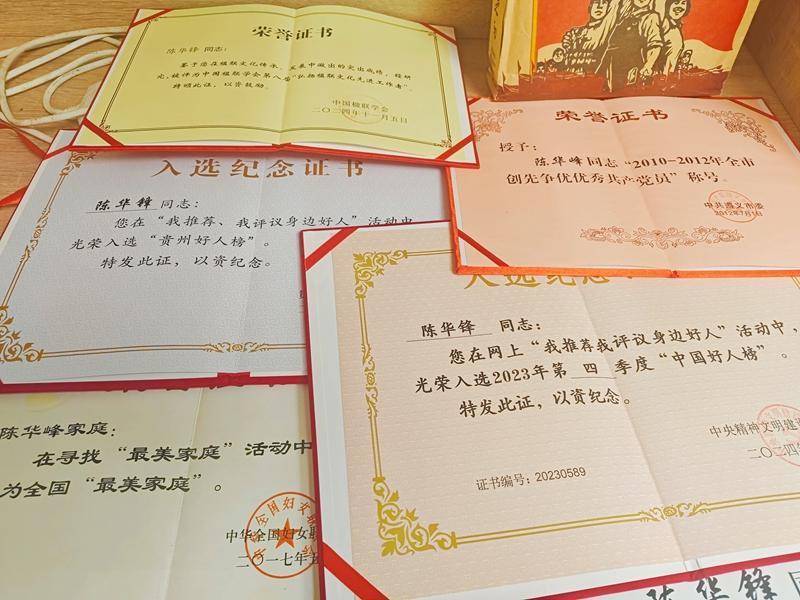 荣誉证书
陈华锋 同志：
鉴于您在楹联文化传承、发展中做出的突出成绩，经研
究，被评为中国楹联学会第八届“弘扬楹联文化先进工作者”。
特颁此证，以资鼓励。
中国楹联学会
二〇二四年十一月五日
荣誉证书
授予：
陈华峰同志“2010-2012年全市
创先争优优秀共产党员”称号。
中共遵义市委
2012年7月1日
入选纪念证书
陈华锋 同志：
您在“我推荐、我评议身边好人”活动中
光荣入选“贵州好人榜”。
特发此证，以资纪念。
入选纪念
陈华锋 同志：
您在网上“我推荐我评议身边好人”活动中，
光荣入选2023年第 四 季度“中国好人榜”。
特发此证，以资纪念。
中央精神文明建设
二〇二四年
证书编号：20230589
陈华峰家庭：
在寻找“最美家庭”活动中
为全国“最美家庭”。
中华全国妇女联
二〇一七年五
陈华锋 同